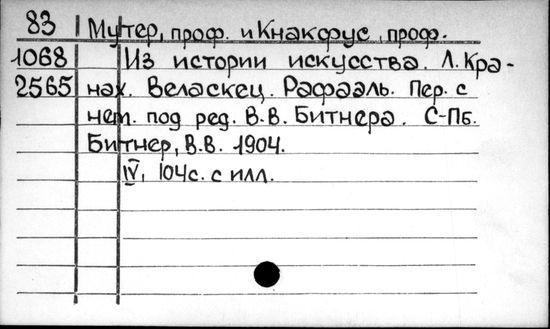 83 Мутер, проф. и Кнакфус, проф.
1068 Из истории искусства. Л. Кра-
2565 нах. Веласкец. Рафаэль. Пер. с
нем. под ред. В.В. Битнера. С-Пб.
Битнер, В.В. 1904.
IV, 104с. с илл.